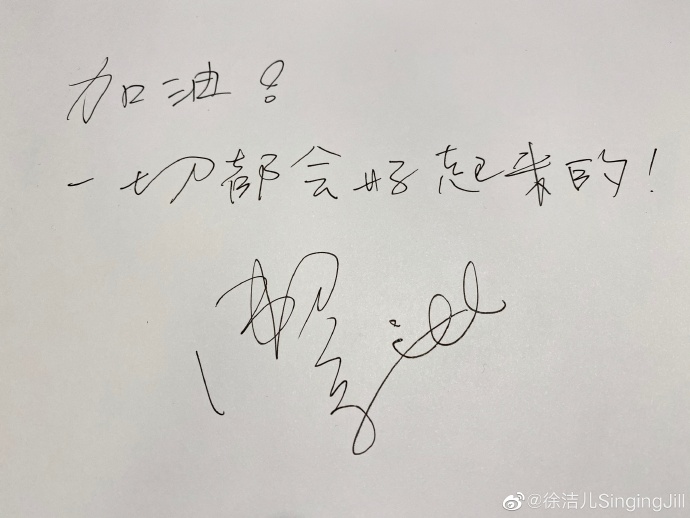 加油！
一切都会好起来的！
@徐洁儿SingingJill